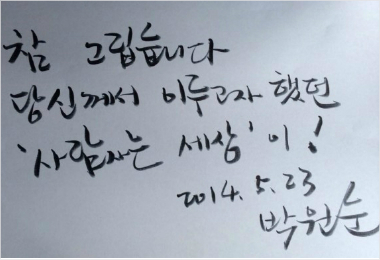 참 그립습니다
당신께서 이루고자 했던
'사람사는 세상'이!
2014. 5. 23
박원순